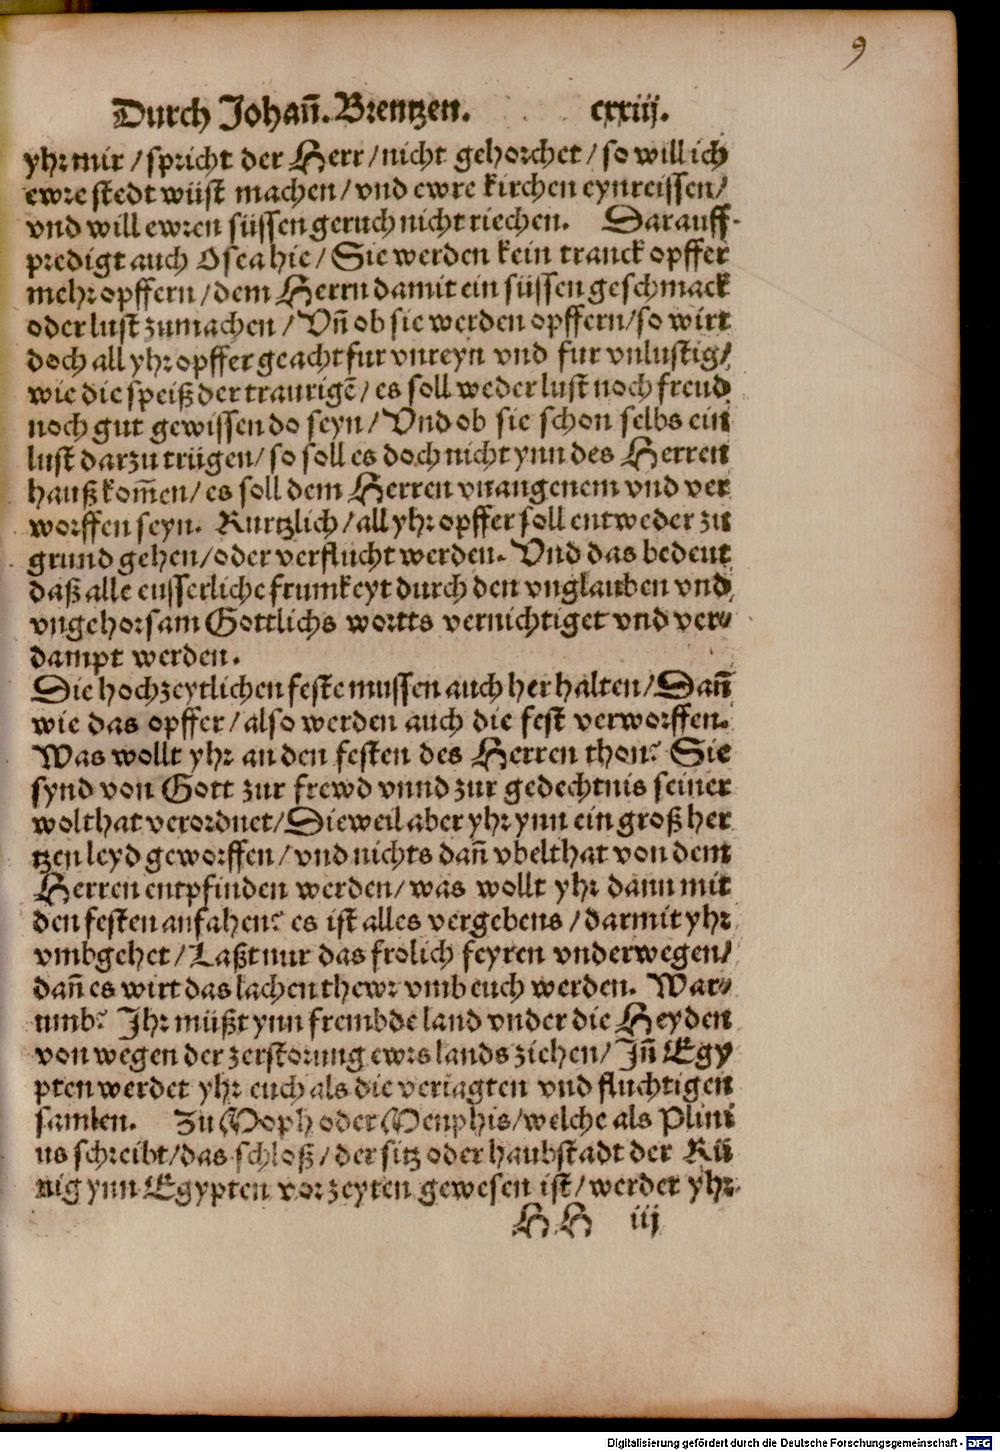 9
Durch Johañ. Brentzen. cxxiij.
yhr mir / spricht der Herr / nicht gehorchet / so will ich
ewre stedt wüst machen / vnd ewre kirchen eynreissen /
vnd will ewren süssen geruch nicht riechen. Darauff
predigt auch Osea hie / Sie werden kein tranck opffer
mehr opffern / dem Herrn damit ein süssen geschmack
oder lust zumachen / Vñ ob sie werden opffern / so wirt
doch all yhr opffer geacht fur vnreyn vnd fur vnlustig /
wie die speiß der traurigẽ / es soll weder lust noch freud
noch gut gewissen do seyn / Vnd ob sie schon selbs ein
lust darzu trügen / so soll es doch nicht ynn des Herren
hauß kom̃en / es soll dem Herren vnangenem vnd ver
worffen seyn. Kurtzlich / all yhr opffer soll entweder zu
grund gehen / oder verflucht werden. Vnd das bedeut
daß alle eusserliche frumkeyt durch den vnglauben vnd
vngehorsam Gottlichs wortts vernichtiget vnd ver⸗
dampt werden.
Die hochzeytlichen feste mussen auch her halten / Dañ
wie das opffer / also werden auch die fest verworffen.
Was wollt yhr an den festen des Herren thon? Sie
synd von Gott zur frewd vnnd zur gedechtnis seiner
wolthat verordnet / Dieweil aber yhr ynn ein groß her
tzen leyd geworffen / vnd nichts dañ vbelthat von dem
Herren entpfinden werden / was wollt yhr dann mit
den festen anfahen? es ist alles vergebens / darmit yhr
vmbgehet / Laßt nur das frolich feyren vnderwegen /
dañ es wirt das lachen thewr vmb euch werden. War⸗
umb? Ihr müßt ynn frembde land vnder die Heyden
von wegen der zerstorung ewrs lands ziehen / Iñ Egy
pten werdet yhr euch als die veriagten vnd fluchtigen
samlen. Zu Moph oder Menphis / welche als Plini
us schreibt / das schloß / der sitz oder haubstadt der Kü
nig ynn Egypten vor zeyten gewesen ist / werdet yhr
HH iij
Digitalisierung gefördert durch die Deutsche Forschungsgemeinschaft - DFG